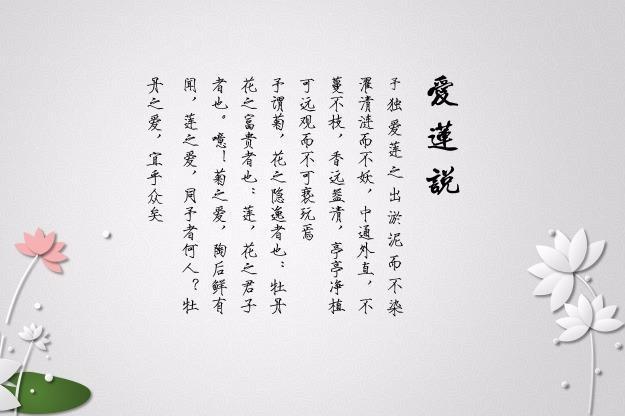 愛蓮說
予独爱莲之出淤泥而不染
濯清涟而不妖，中通外直，不
蔓不枝，香远益清，亭亭净植
可远观而不可亵玩焉
予谓菊，花之隐逸者也；牡丹
花之富贵者也；莲，花之君子
者也。噫！菊之爱，陶后鲜有
闻，莲之爱，同予者何人？牡
丹之爱，宜乎众矣